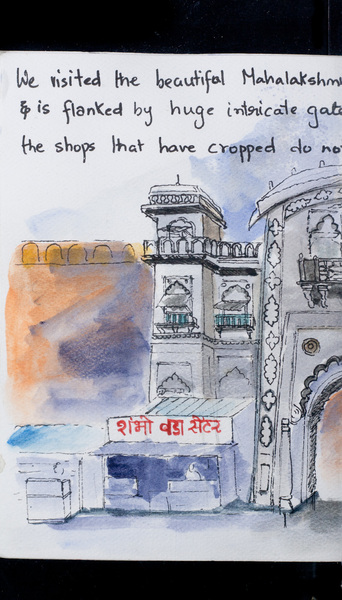 We visited the beautiful Mahalakshm
& is flanked by huge intricate gate
the shops that have cropped do no
शंभो वडा सेंटर